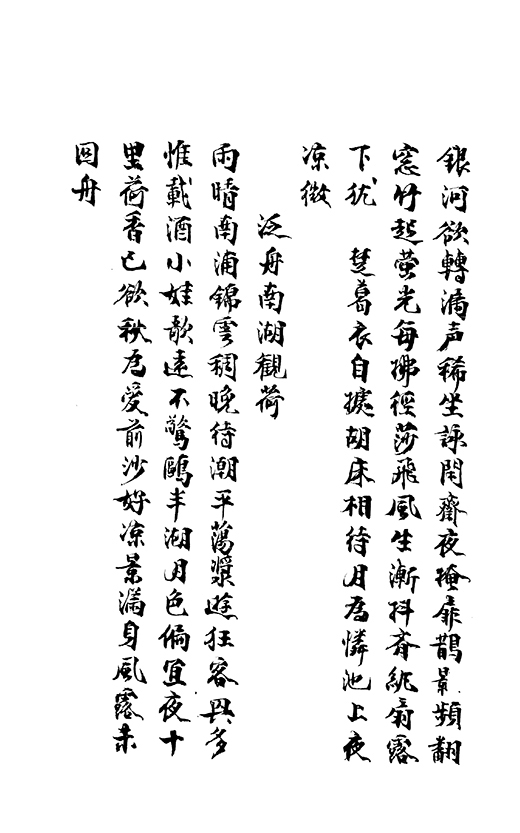 銀河欲轉漏声稀坐詠閑齋夜掩扉鵲影頻翻
窓竹起螢光每拂徑莎飛風生漸抖齐紈扇露
下犹 楚葛衣自據胡床相待月為憐池上夜
凉微
泛舟南湖観荷
雨晴南浦錦雲稠晚待潮平蕩槳遊狂客興多
惟載酒小娃歌遠不驚鷗半湖月色偏宜夜十
里荷香已欲秋為愛前沙好凉景滿身風露未
回舟